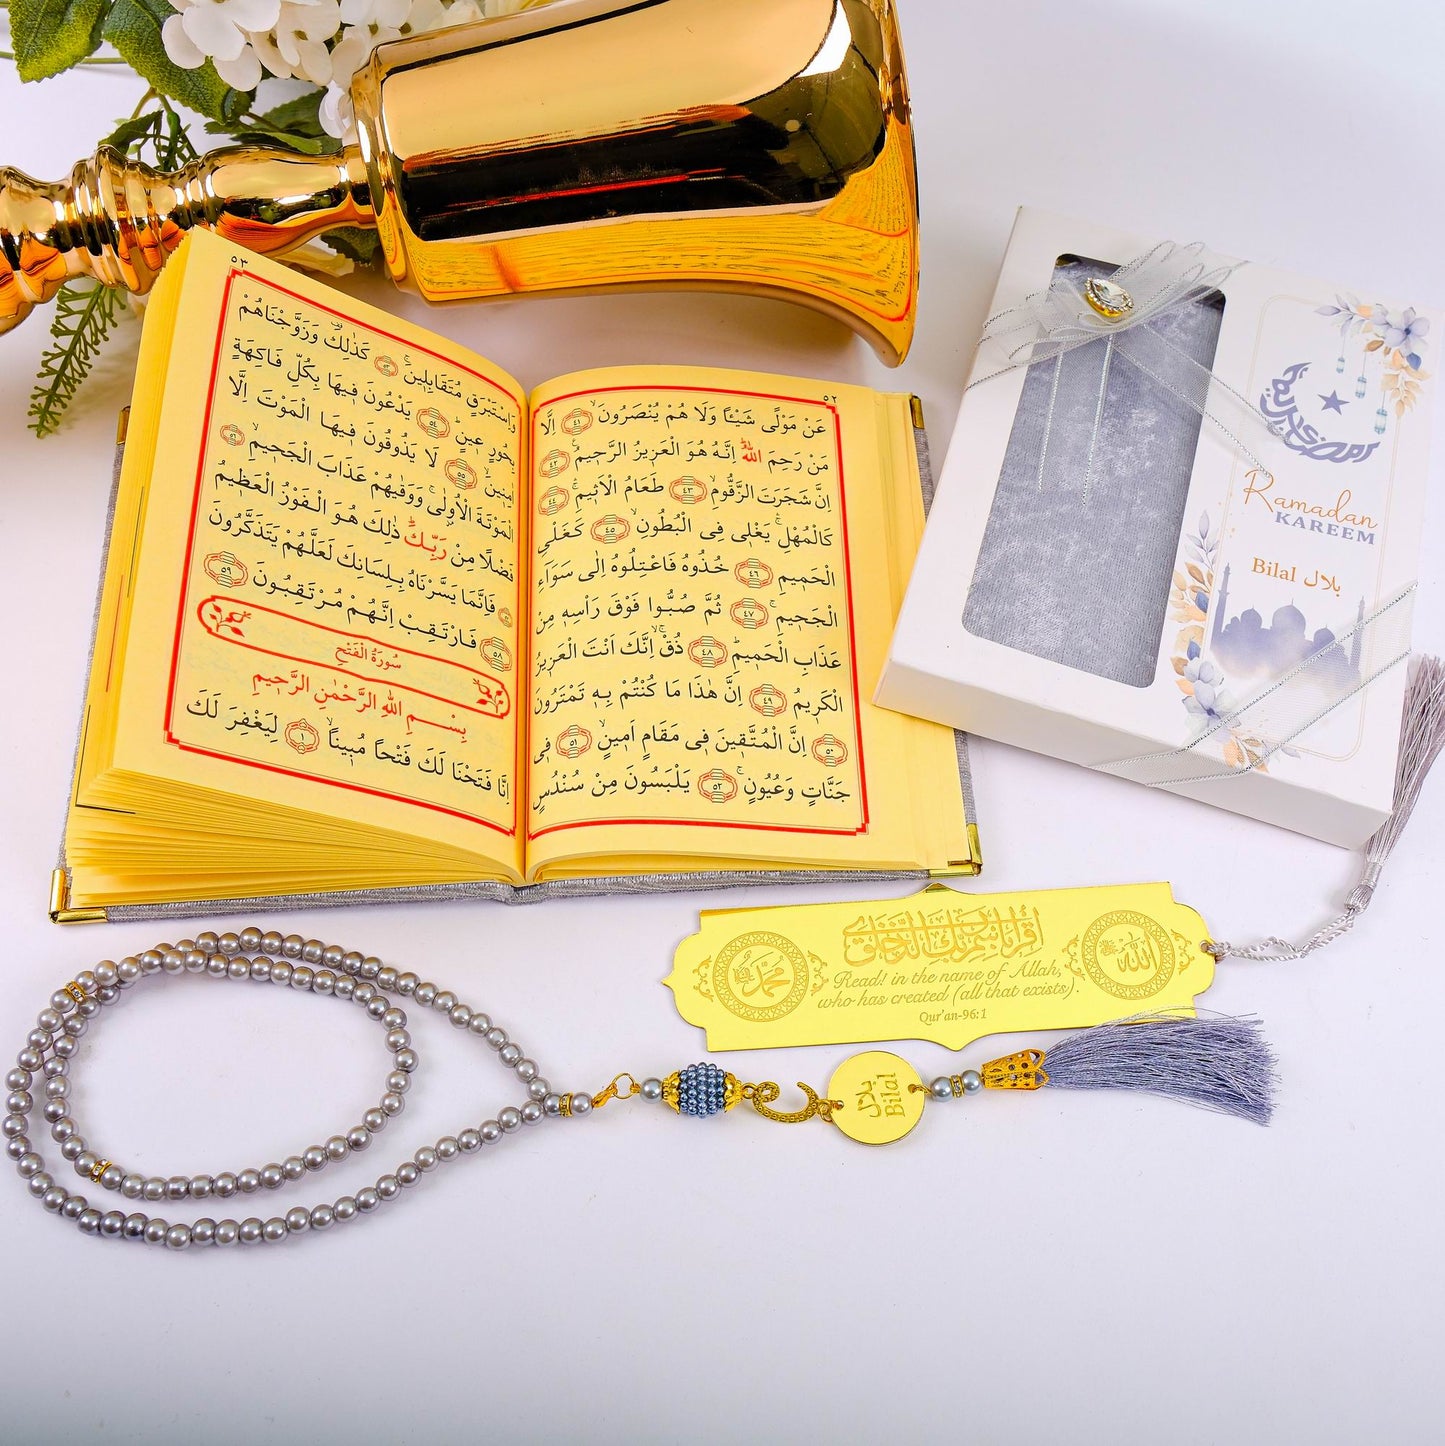 ٥٢
عَنْ مَوْلًى شَيْـًٔا وَلَا هُمْ يُنْصَرُونَۙ ﴿٤١﴾ اِلَّا
مَنْ رَحِمَ اللّٰهُۜ اِنَّهُ هُوَ الْعَزٖيزُ الرَّحٖيمُࣖ ﴿٤٢﴾
اِنَّ شَجَرَتَ الزَّقُّومِۙ ﴿٤٣﴾ طَعَامُ الْاَثٖيمِۚۛ ﴿٤٤﴾
كَالْمُهْلِۚۛ يَغْلٖي فِي الْبُطُونِۙ ﴿٤٥﴾ كَغَلْيِ
الْحَمٖيمِ ﴿٤٦﴾ خُذُوهُ فَاعْتِلُوهُ اِلٰى سَوَٓاءِ
الْجَحٖيمِۗ ﴿٤٧﴾ ثُمَّ صُبُّوا فَوْقَ رَاْسِهٖ مِنْ
عَذَابِ الْحَمٖيمِۜ ﴿٤٨﴾ ذُقْۙ اِنَّكَ اَنْتَ الْعَزٖيزُ
الْكَرٖيمُ ﴿٤٩﴾ اِنَّ هٰذَا مَا كُنْتُمْ بِهٖ تَمْتَرُونَ
﴿٥٠﴾ اِنَّ الْمُتَّقٖينَ فٖي مَقَامٍ اَمٖينٍۙ ﴿٥١﴾ فٖي
جَنَّاتٍ وَعُيُونٍۚ ﴿٥٢﴾ يَلْبَسُونَ مِنْ سُنْدُسٍ
٥٣
وَاِسْتَبْرَقٍ مُتَقَابِلٖينَۚ ﴿٥٣﴾ كَذٰلِكَ۠ وَزَوَّجْنَاهُمْ
بِحُورٍ عٖينٍۜ ﴿٥٤﴾ يَدْعُونَ فٖيهَا بِكُلِّ فَاكِهَةٍ
اٰمِنٖينَۙ ﴿٥٥﴾ لَا يَذُوقُونَ فٖيهَا الْمَوْتَ اِلَّا
الْمَوْتَةَ الْاُو۫لٰىۚ وَوَقٰيهُمْ عَذَابَ الْجَحٖيمِۙ ﴿٥٦﴾
فَضْلًا مِنْ رَبِّكَۜ ذٰلِكَ هُوَ الْفَوْزُ الْعَظٖيمُ
﴿٥٧﴾ فَاِنَّمَا يَسَّرْنَاهُ بِلِسَانِكَ لَعَلَّهُمْ يَتَذَكَّرُونَ
﴿٥٨﴾ فَارْتَقِبْ اِنَّهُمْ مُرْتَقِبُونَ ﴿٥٩﴾
سُورَةُ الْفَتْحِ
بِسْمِ اللّٰهِ الرَّحْمٰنِ الرَّحٖيمِ
اِنَّا فَتَحْنَا لَكَ فَتْحًا مُبٖينًاۙ ﴿١﴾ لِيَغْفِرَ لَكَ
رمضان كريم
Ramadan
KAREEM
Bilal بلال
اقرأ باسم ربك الذي خلق
محمد ﷺ
Read! in the name of Allah,
who has created (all that exists).
Qur'an-96:1
الله ﷻ
بلال
Bilal